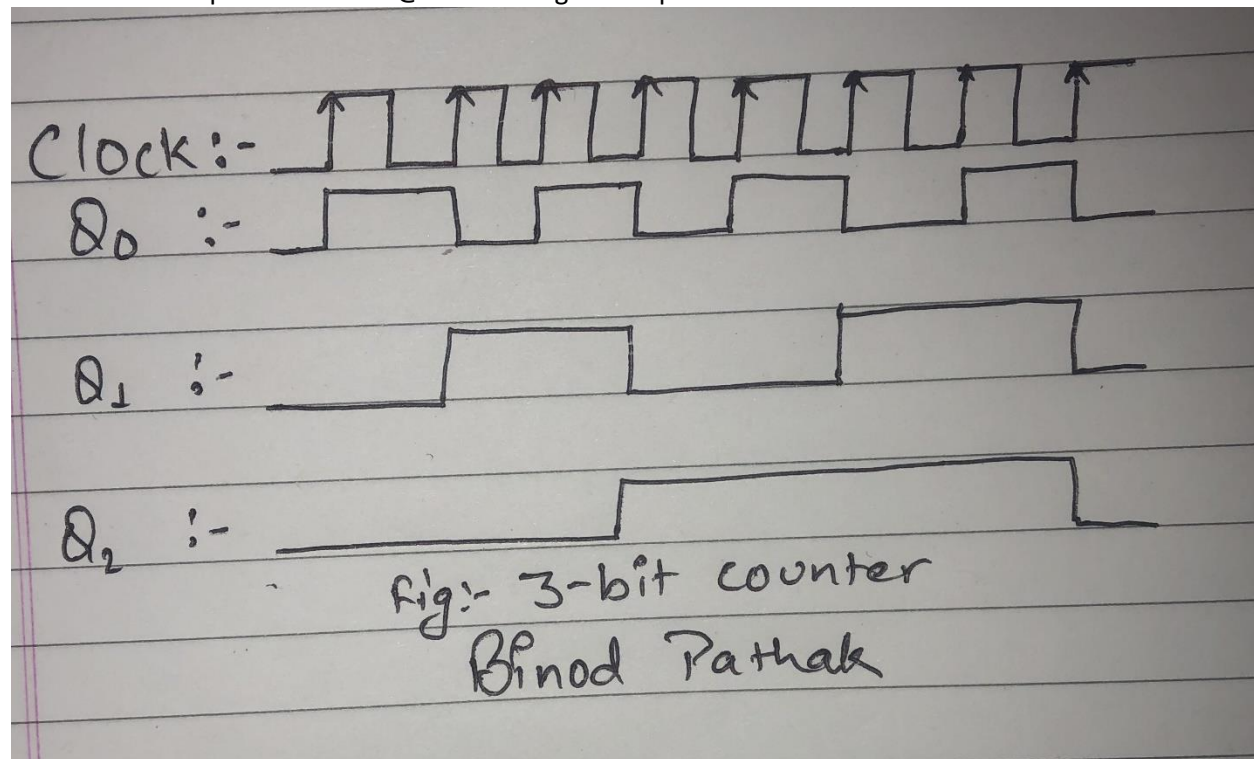 Clock:-
Q0 :-
Q1 :-
Q2 :-
Fig:- 3-bit counter
Binod Pathak